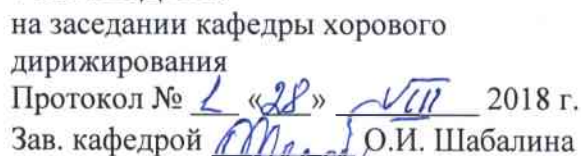 на заседании кафедры хорового
дирижирования
Протокол № 1 «28» VIII 2018 г.
Зав. кафедрой О.И. Шабалина